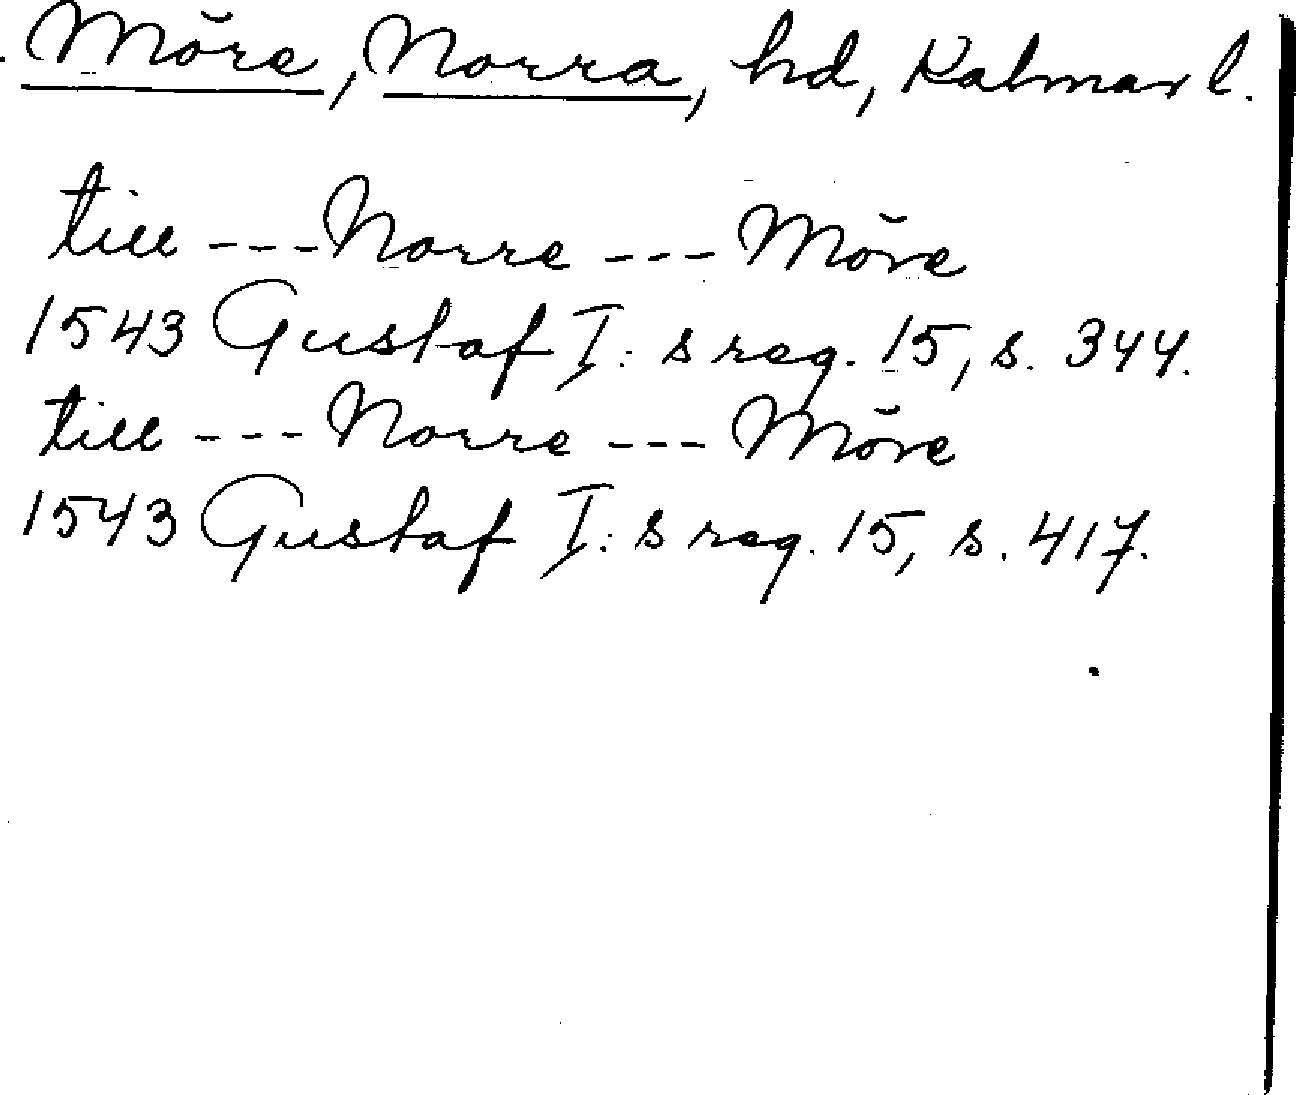 Möre, Norra, hd, Kalmar l.
till --- Norre --- Möre
1543 Gustaf I:s reg. 15, s. 344.
till --- Norre --- Möre
1543 Gustaf I:s reg. 15, s. 417.